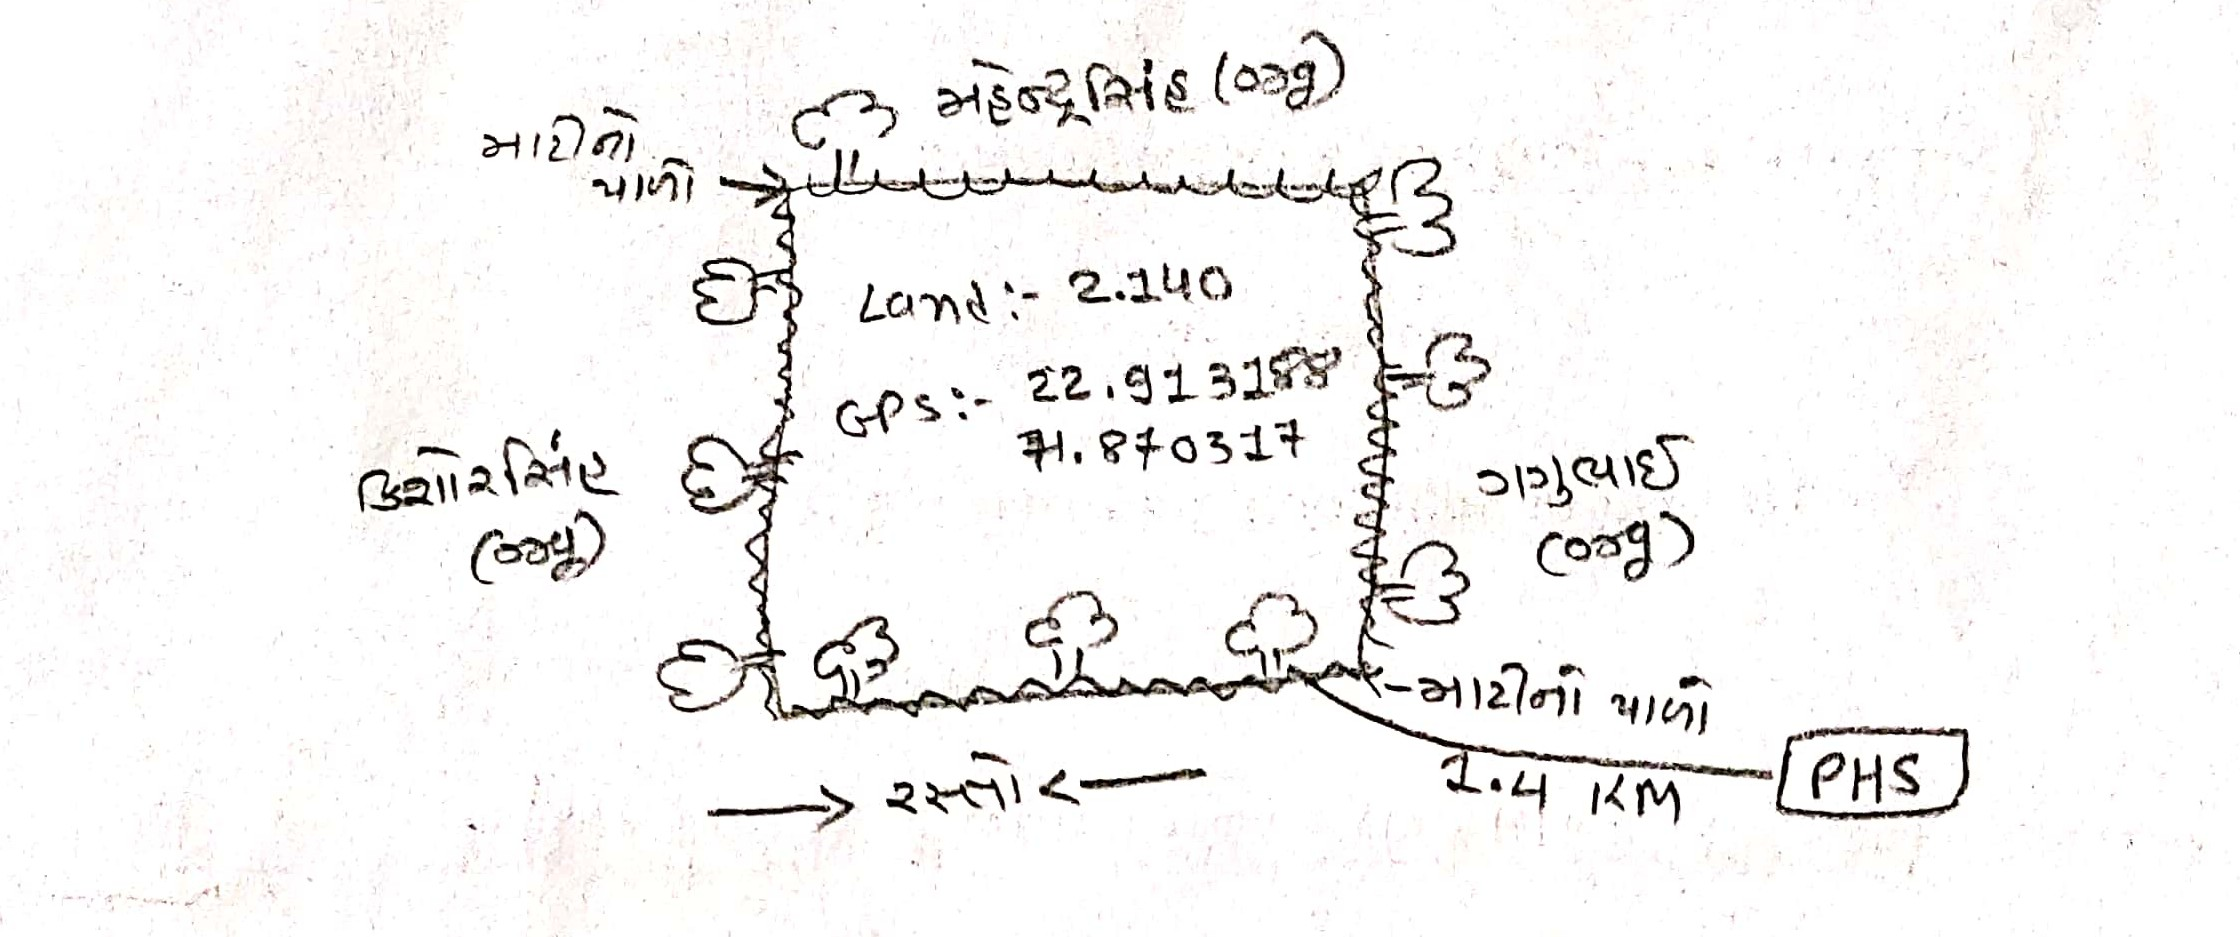 મહેન્દ્રસિંહ (બાજુ)
માટીનો
પાળો
Land:- 2.140
GPS:- 22.913188
71.870317
કિશોરસિંહ
(બાજુ)
ગગુભાઈ
(બાજુ)
માટીનો પાળો
રસ્તો
1.4 KM
PHS